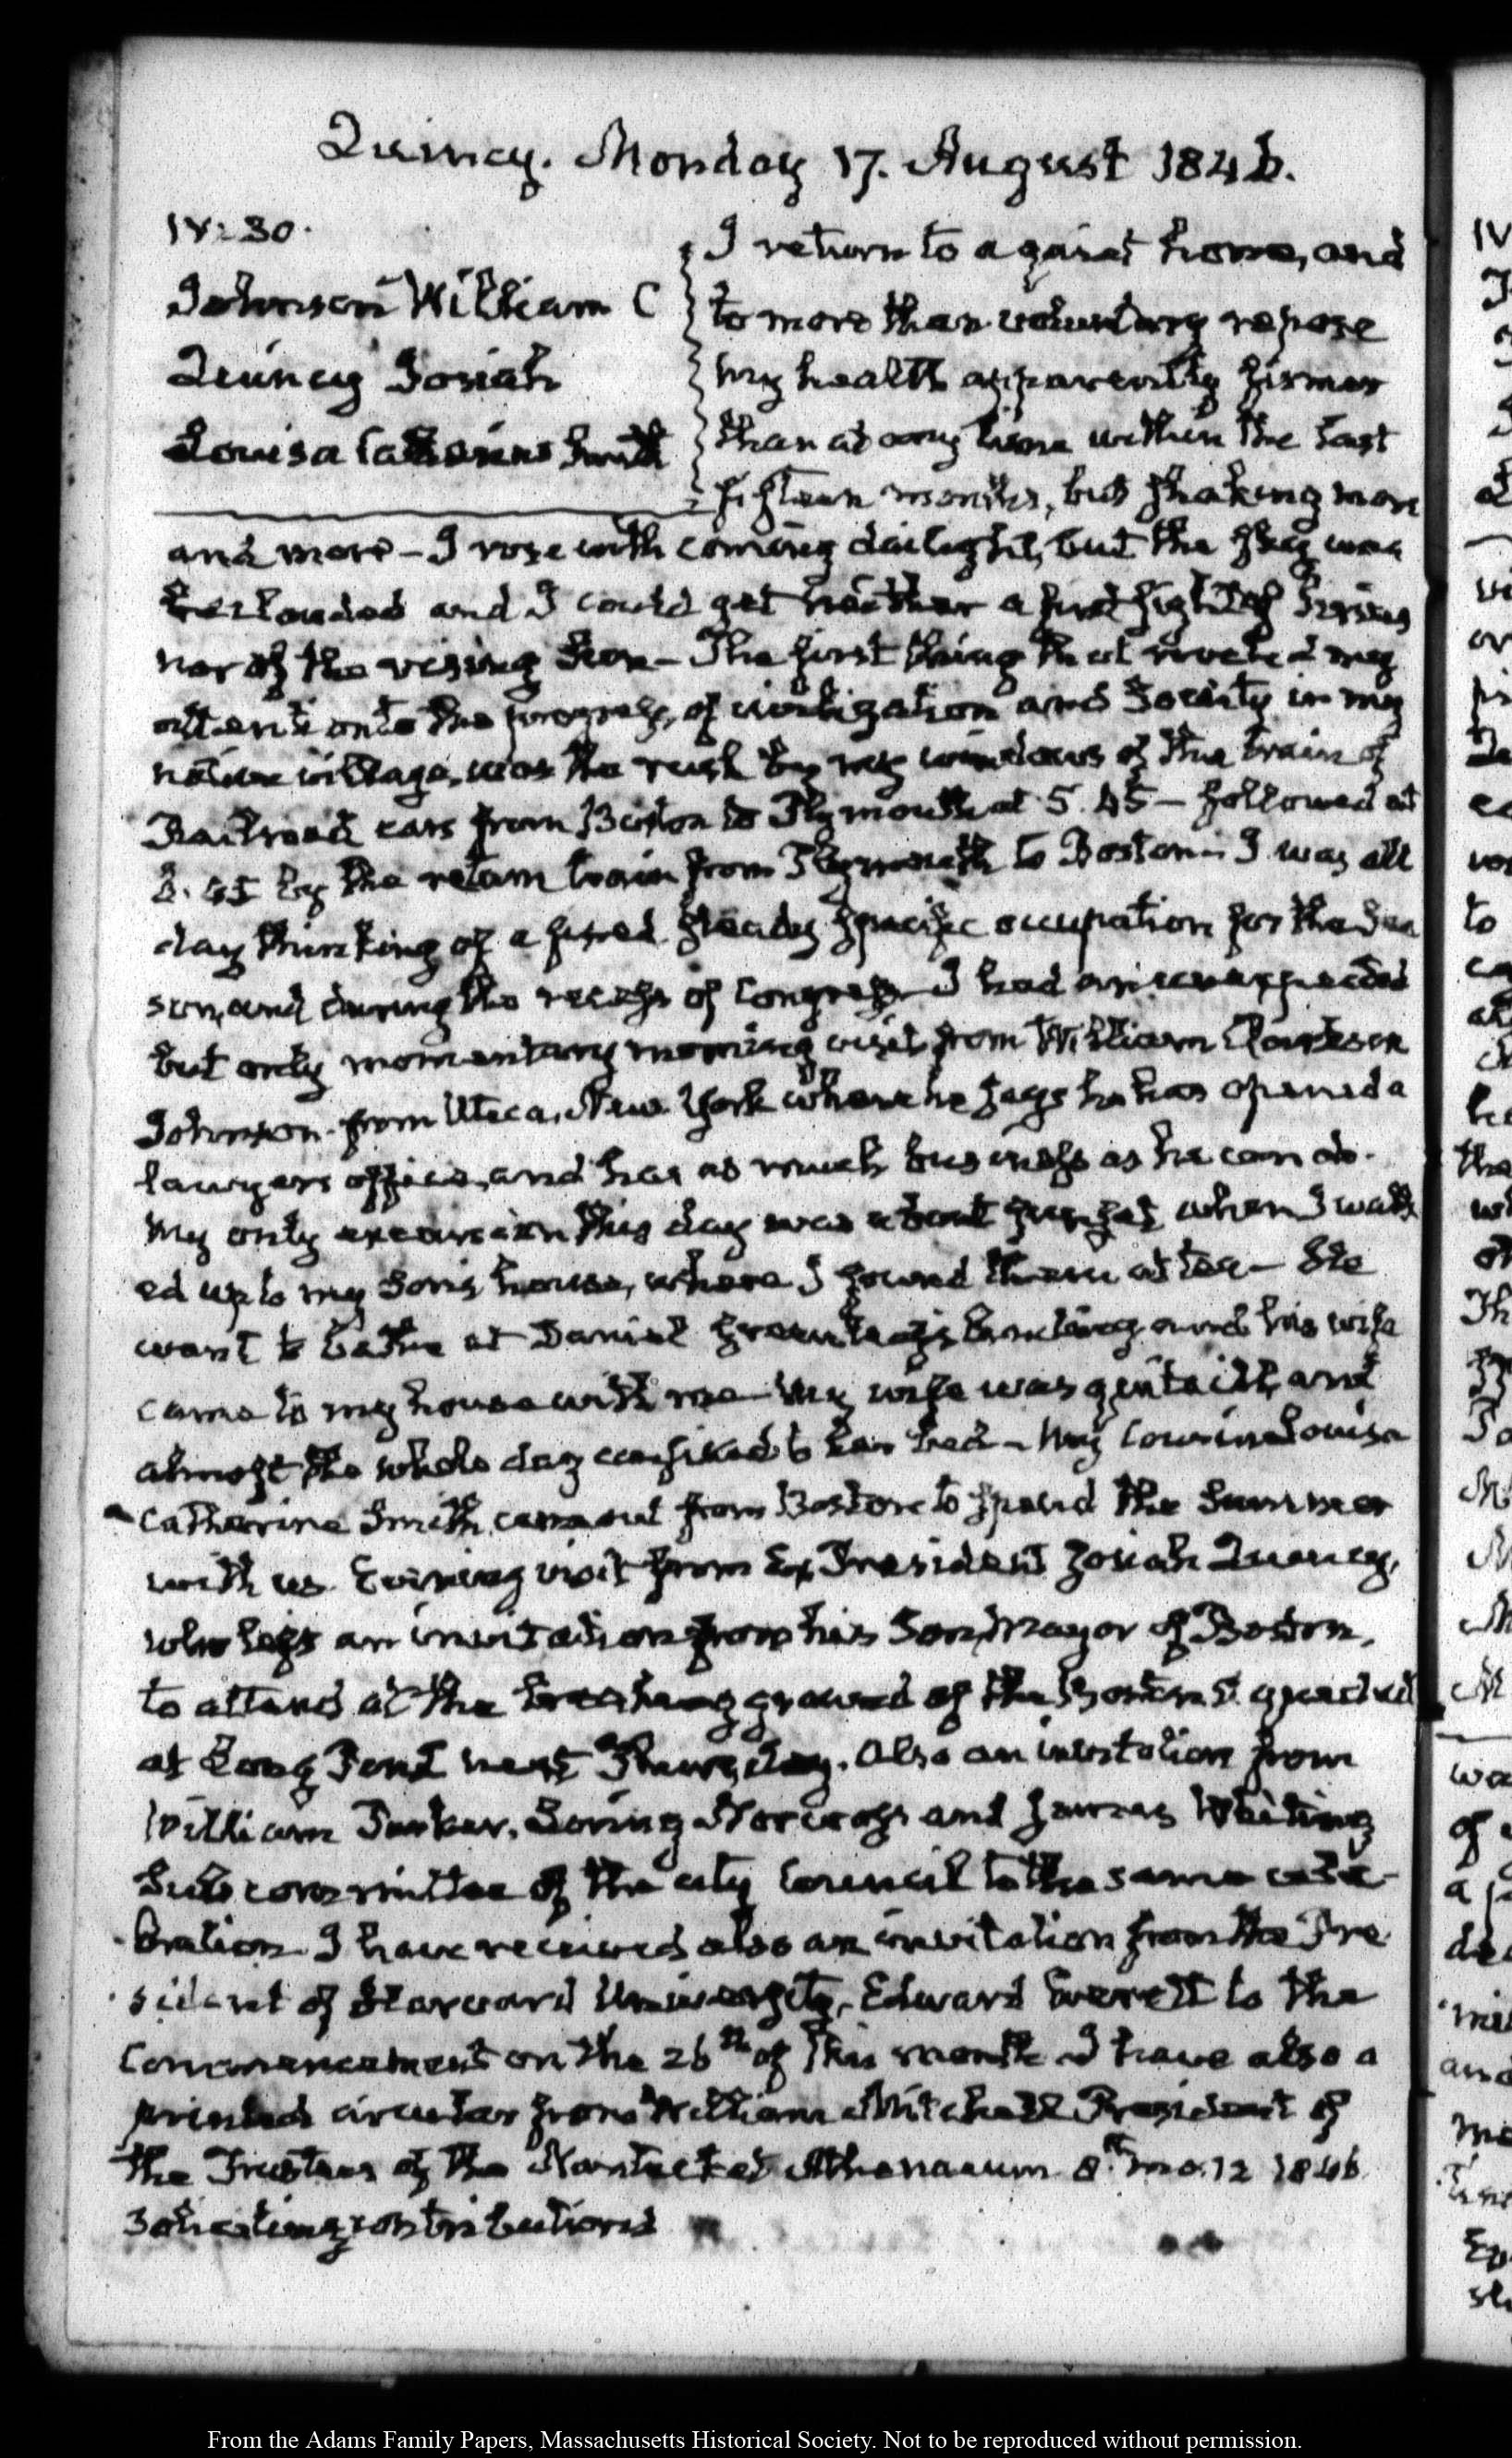 Quincy. Monday 17. August 1846.
IV:30.
Johnson William C
Quincy Josiah
Louisa Catharine Smith
I return to a quiet home, and
to more than voluntary repose
my health apparently firmer
than at any time within the last
fifteen months, but shaking more
and more - I rose with coming daylight, but the sky was
beclouded and I could get neither a first sight of
nor of the rising Sun - The first thing that riveted my
attention to the progress of civilization and Society in my
native village, was the rush by my windows of the train of
Railroad cars from Boston to Plymouth at 5.45 - followed at
by the return train from Plymouth to Boston - I was all
day thinking of a fixed steady specific occupation for the sea
son, and during the recess of Congress - I had an unexpected
but only momentary morning visit from William Clarkson
Johnson from Utica, New York where he says he has opened a
lawyers office, and has as much business as he can do.
My only excursion this day was about sunset when I walk
ed up to my Son's house, where I found them at tea - He
went to bathe at Daniel Greenleaf's Landing and his wife
came to my house with me - My wife was quite ill, and
almost the whole day confined to her bed - My Cousin Louisa
Catharine Smith came out from Boston to spend the Summer
with us. Evening visit from Ex President Josiah Quincy,
who left an invitation from his Son, Mayor of Boston,
to attend at the breaking ground of the Boston aqueduct
at Long Pond next Thursday. Also an invitation from
William Parker, Loring Norcross and James Whiting
Sub committee of the city Council to the same cele-
bration. I have received also an invitation from the Pre
sident of Harvard University, Edward Everett to the
Commencement on the 26th of this month I have also a
printed circular from William Mitchell President of
the Trustees of the Nantucket Athenaeum 8th mo. 12 1846
soliciting contributions
From the Adams Family Papers, Massachusetts Historical Society. Not to be reproduced without permission.